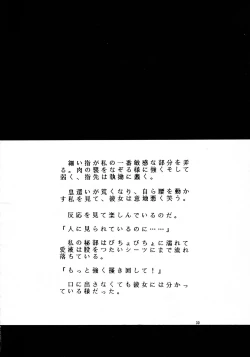 細い指が私の一番敏感な部分を弄
る。肉の襞をなぞる様に強くそして
弱く、指先は執拗に蠢く。
息遣いが荒くなり、自ら腰を動か
す私を見て、彼女は意地悪く笑う。
反応を見て楽しんでいるのだ。
「人に見られているのに……」
私の秘部はびちょびちょに濡れて
愛液は股をつたいシーツにまで流れ
落ちている。
「もっと強く掻き回して！」
口に出さなくても彼女には分かっ
ている様だった。